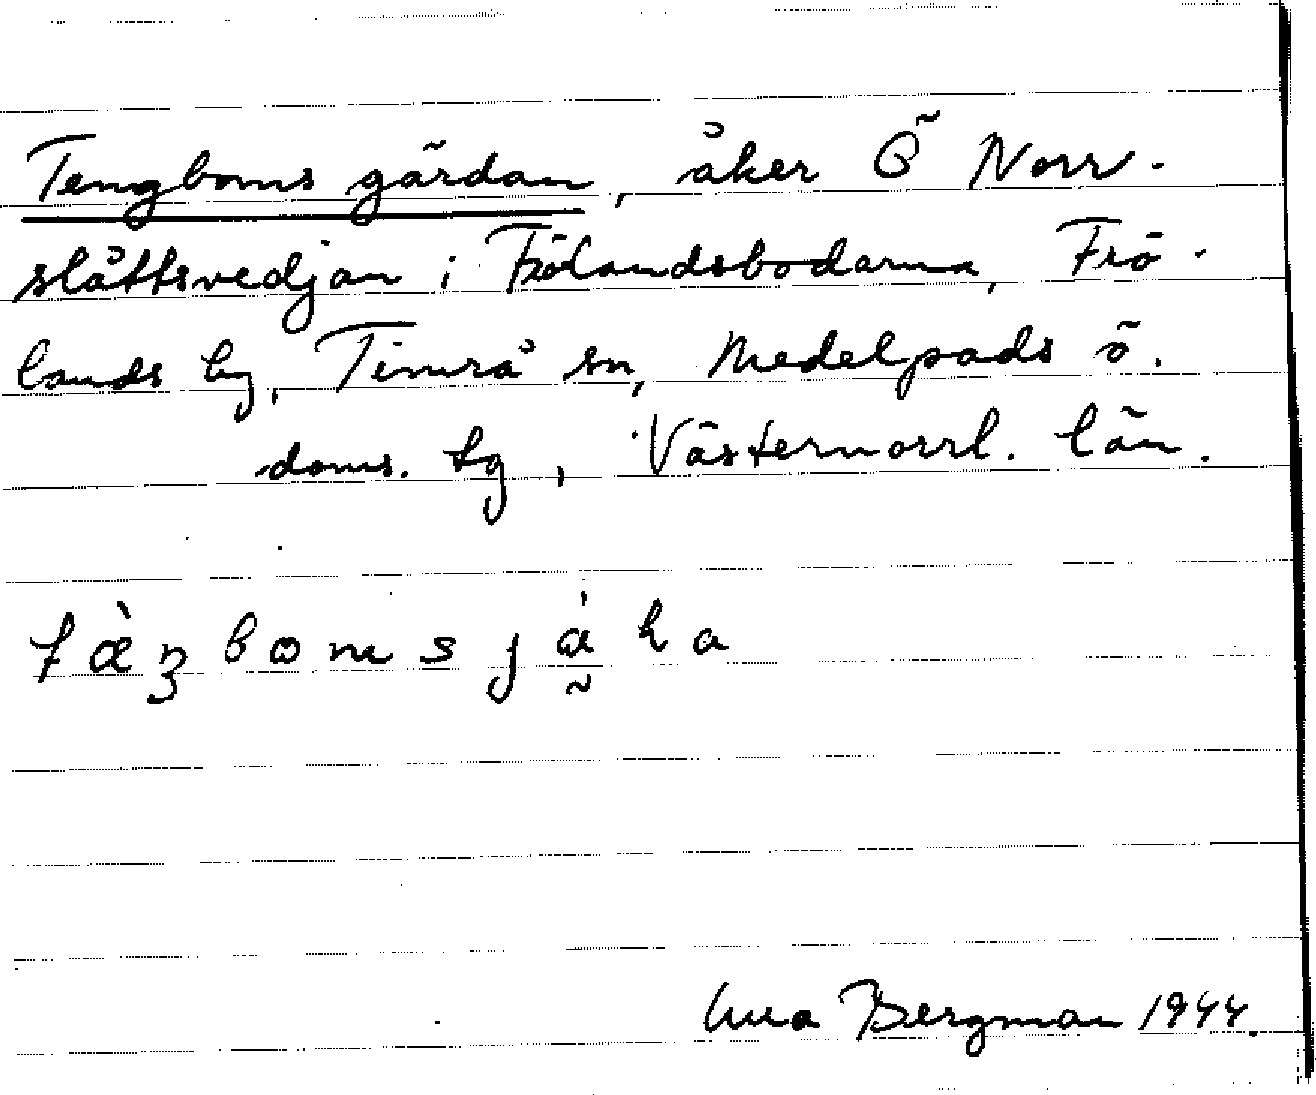 Tengboms gärdan, åker Ö Norr-
slåttsvedjan i Frölandsbodarna, Frö-
lands by, Timrå sn, Medelpads ö.
doms. tg, Västernorrl. län.
Bergman 1944.